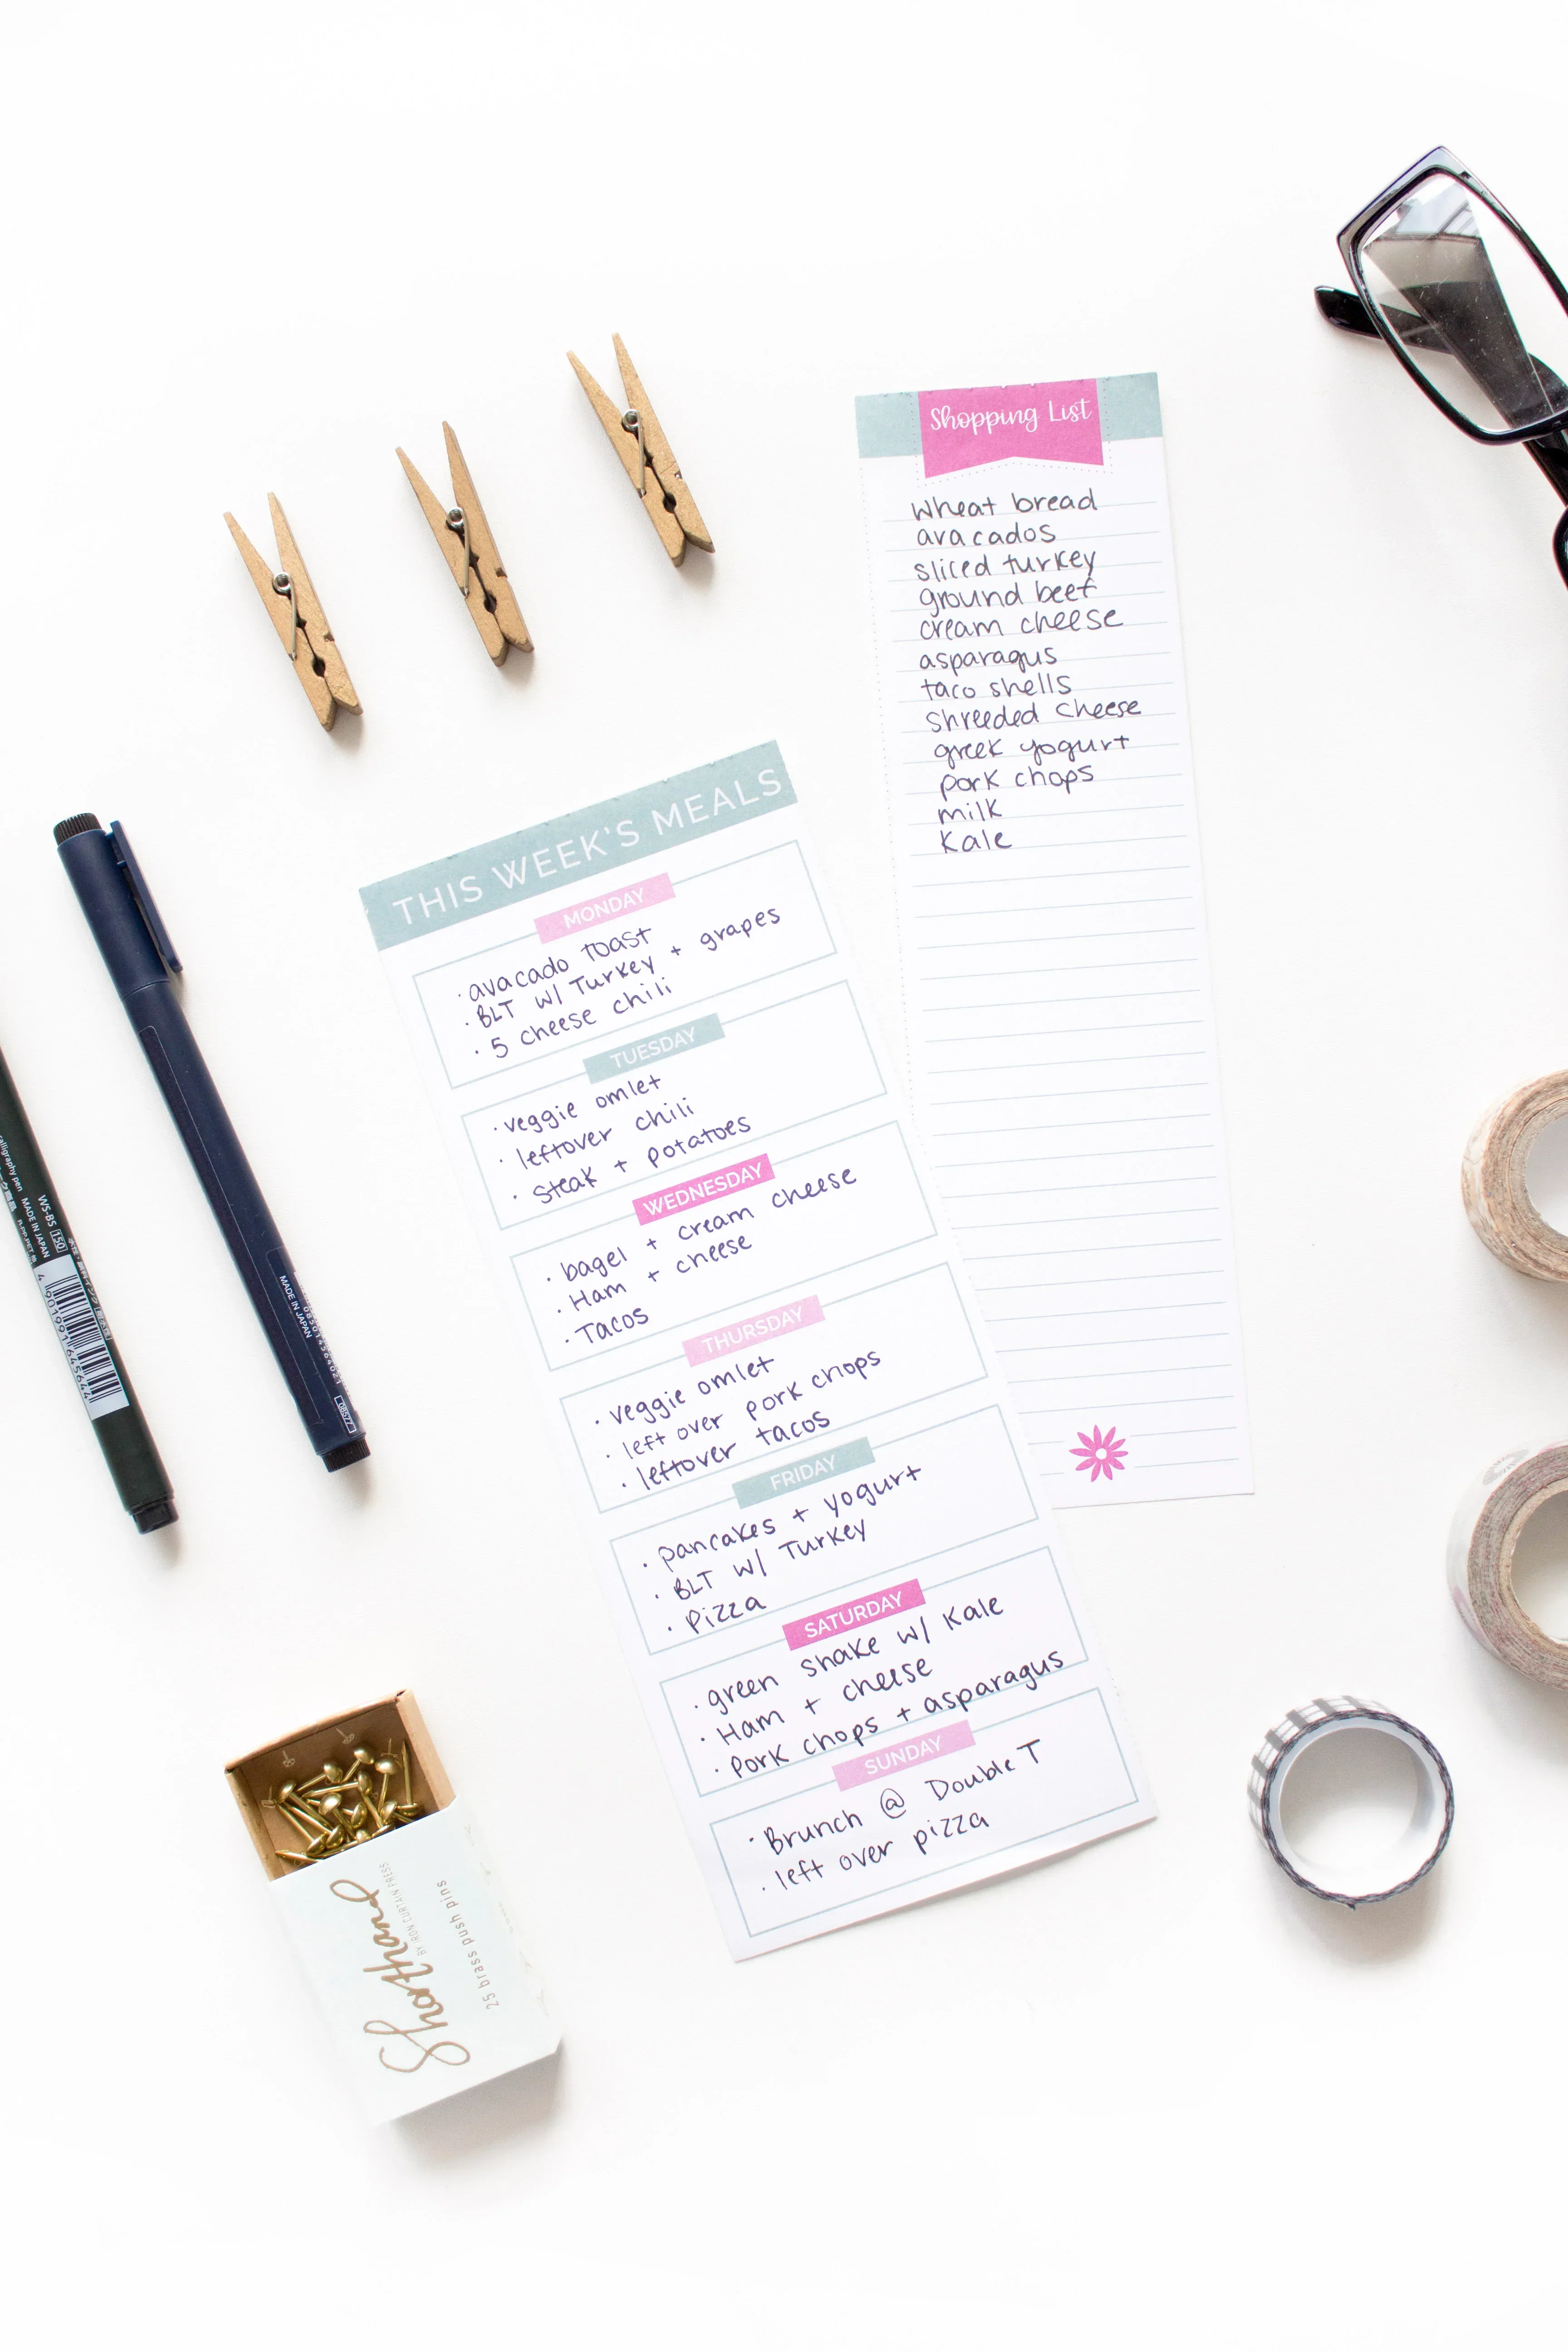 Shopping List
wheat bread
avacados
sliced turkey
ground beef
cream cheese
asparagus
taco shells
shreeded cheese
greek yogurt
pork chops
milk
Kale
THIS WEEK'S MEALS
MONDAY
· avacado toast
· BLT w/ Turkey + grapes
· 5 cheese chili
TUESDAY
· veggie omlet
· leftover chili
· steak + potatoes
WEDNESDAY
· bagel + cream cheese
· Ham + cheese
· Tacos
THURSDAY
· veggie omlet
· left over pork chops
· leftover tacos
FRIDAY
· pancakes + yogurt
· BLT w/ Turkey
· Pizza
SATURDAY
· green shake w/ Kale
· Ham + cheese
· Pork chops + asparagus
SUNDAY
· Brunch @ Double T
· left over pizza
calligraphy pen
WS-BS 150
MADE IN JAPAN
4 901991 645644
MADE IN JAPAN
08577
Shorthand
BY IRON CURTAIN PRESS
25 brass push pins